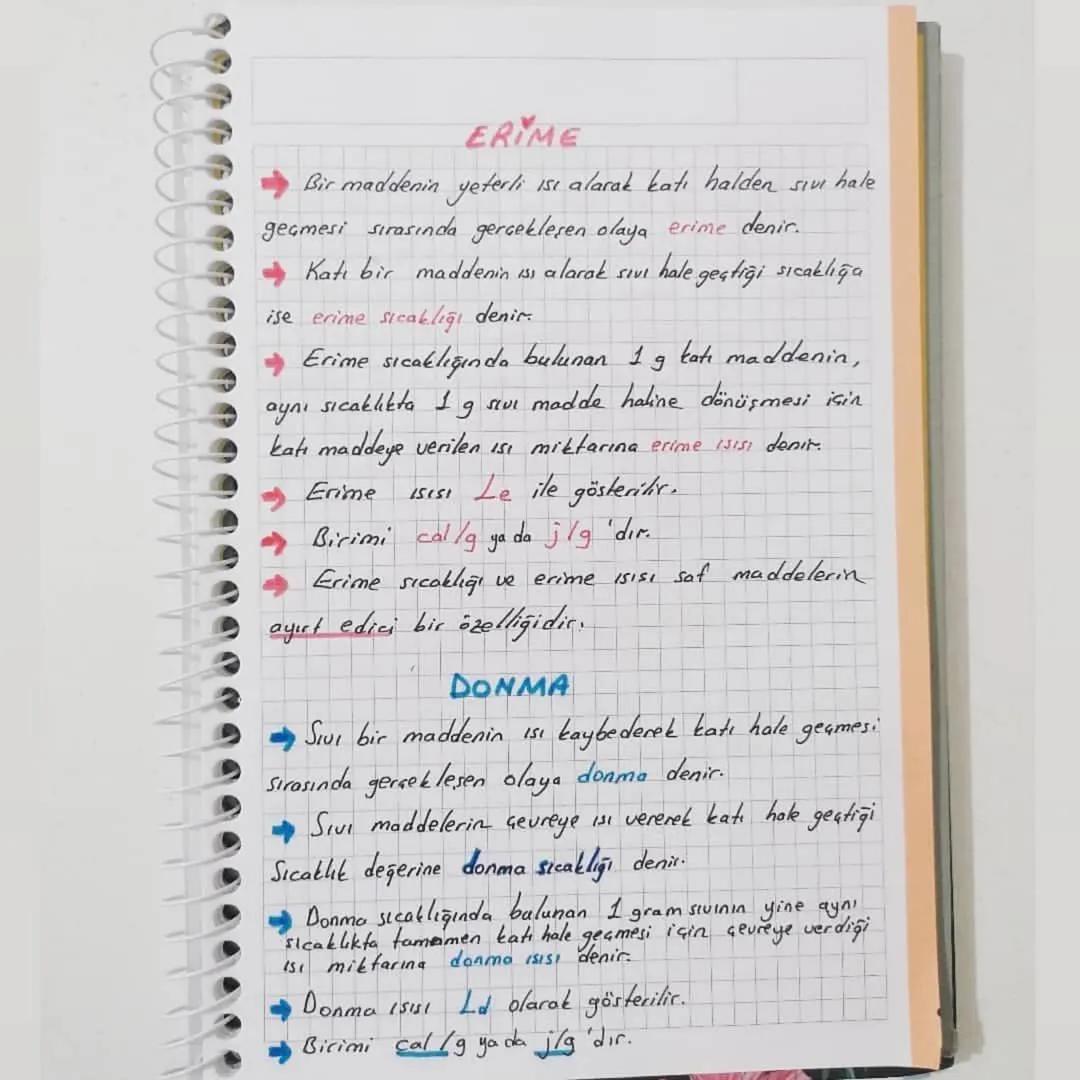 ERİME
➡ Bir maddenin yeterli ısı alarak katı halden sıvı hale
geçmesi sırasında gerçekleşen olaya erime denir.
➡ Katı bir maddenin ısı alarak sıvı hale geçtiği sıcaklığa
ise erime sıcaklığı denir.
➡ Erime sıcaklığında bulunan 1 g katı maddenin,
aynı sıcaklıkta 1 g sıvı madde haline dönüşmesi için
katı maddeye verilen ısı miktarına erime ısısı denir.
➡ Erime ısısı Le ile gösterilir.
➡ Birimi cal/g ya da j/g 'dır.
➡ Erime sıcaklığı ve erime ısısı saf maddelerin
ayırt edici bir özelliğidir.
DONMA
➡ Sıvı bir maddenin ısı kaybederek katı hale geçmesi
sırasında gerçekleşen olaya donma denir.
➡ Sıvı maddelerin çevreye ısı vererek katı hale geçtiği
Sıcaklık değerine donma sıcaklığı denir.
➡ Donma sıcaklığında bulunan 1 gram sıvının yine aynı
sıcaklıkta tamamen katı hale geçmesi için çevreye verdiği
ısı miktarına donma ısısı denir.
➡ Donma ısısı Ld olarak gösterilir.
➡ Birimi cal/g ya da j/g 'dır.